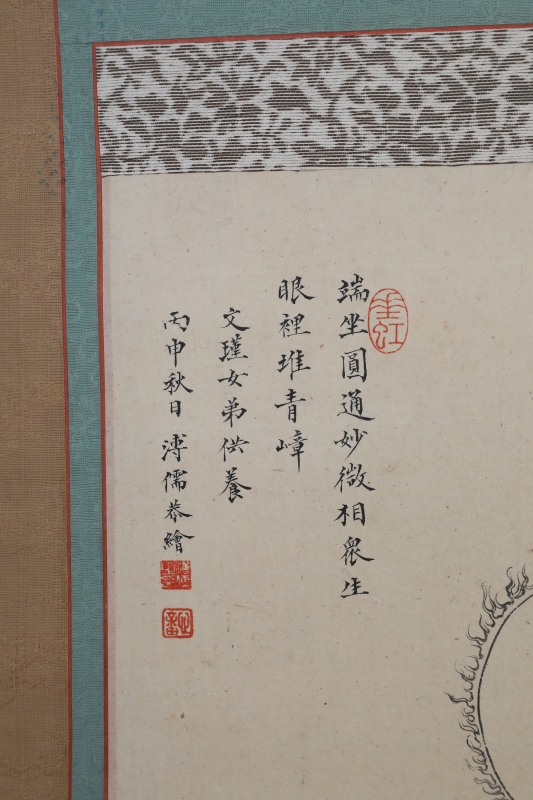 端坐圓通妙微相眾生
眼裡堆青嶂
文瑾女弟供養
丙申秋日 溥儒恭繪